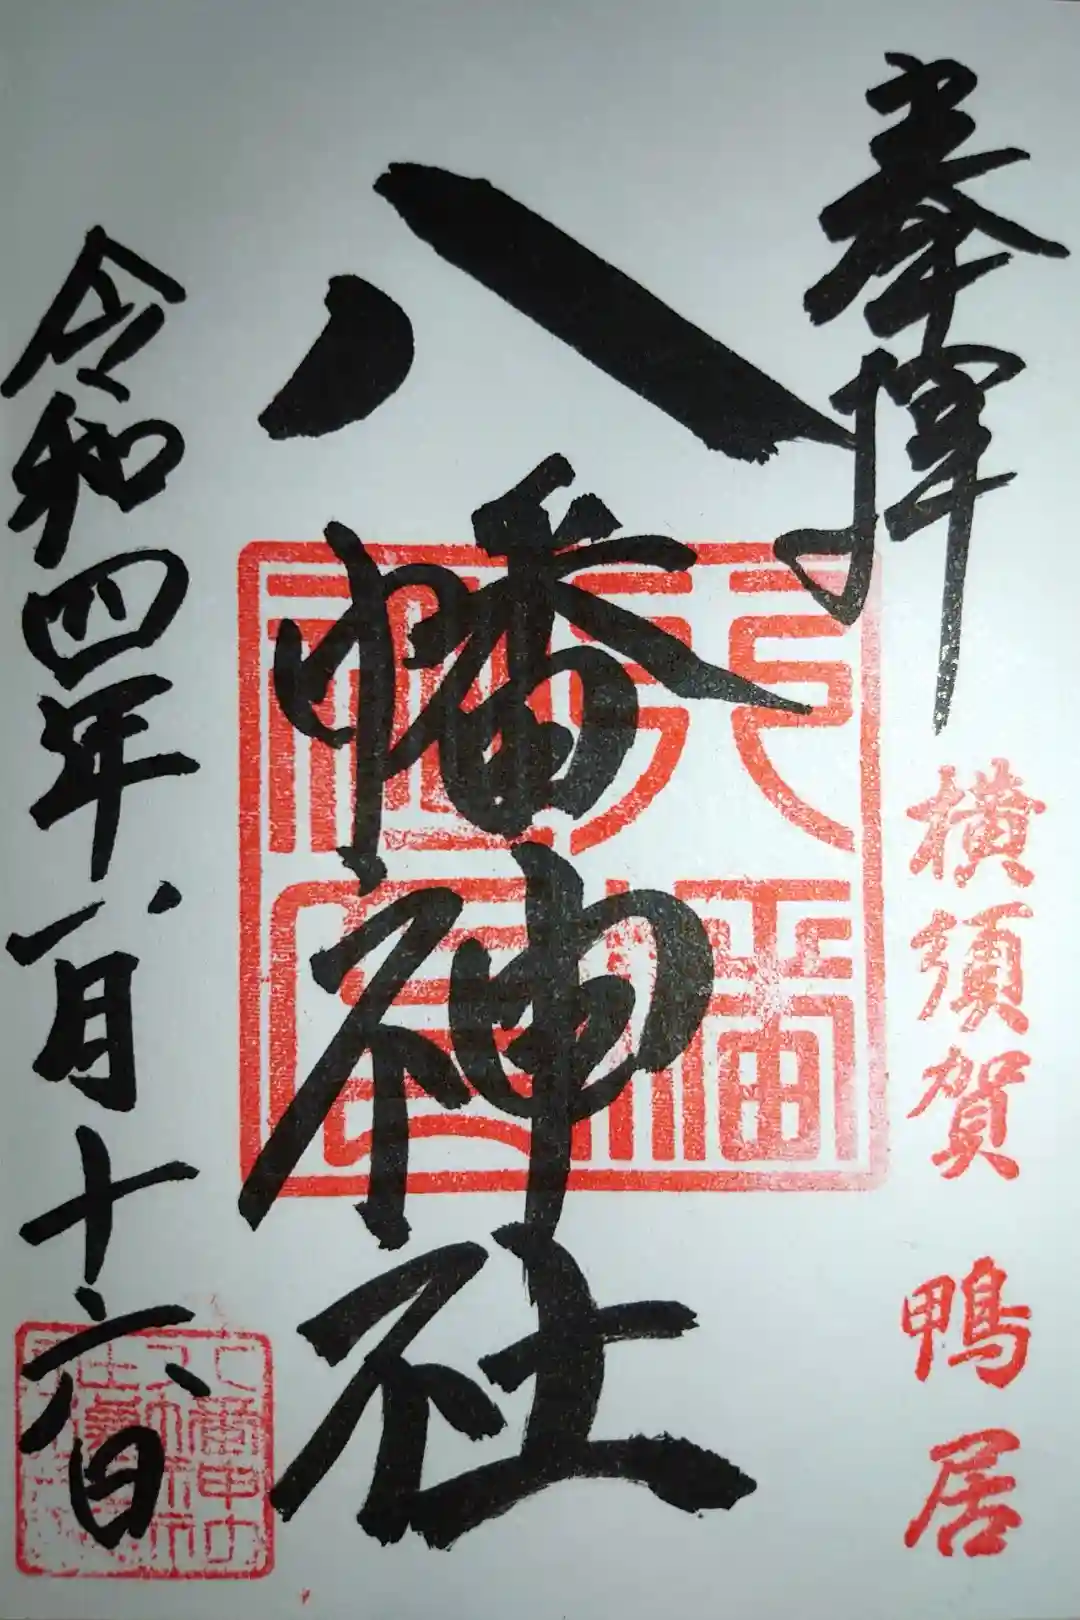 奉拝
横須賀 鴨居
八幡神社
令和四年八月十六日